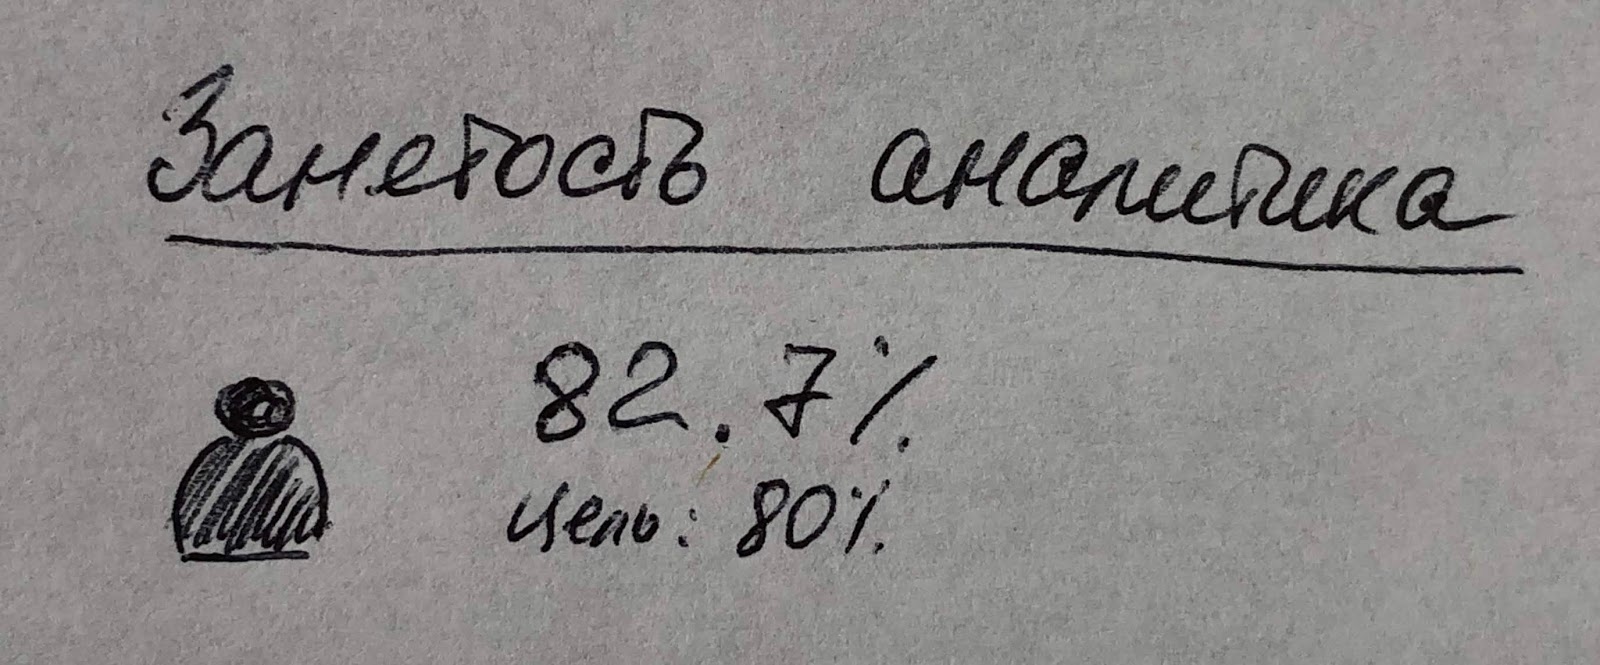 Занетость аналитика
82.7%
Цель: 80%